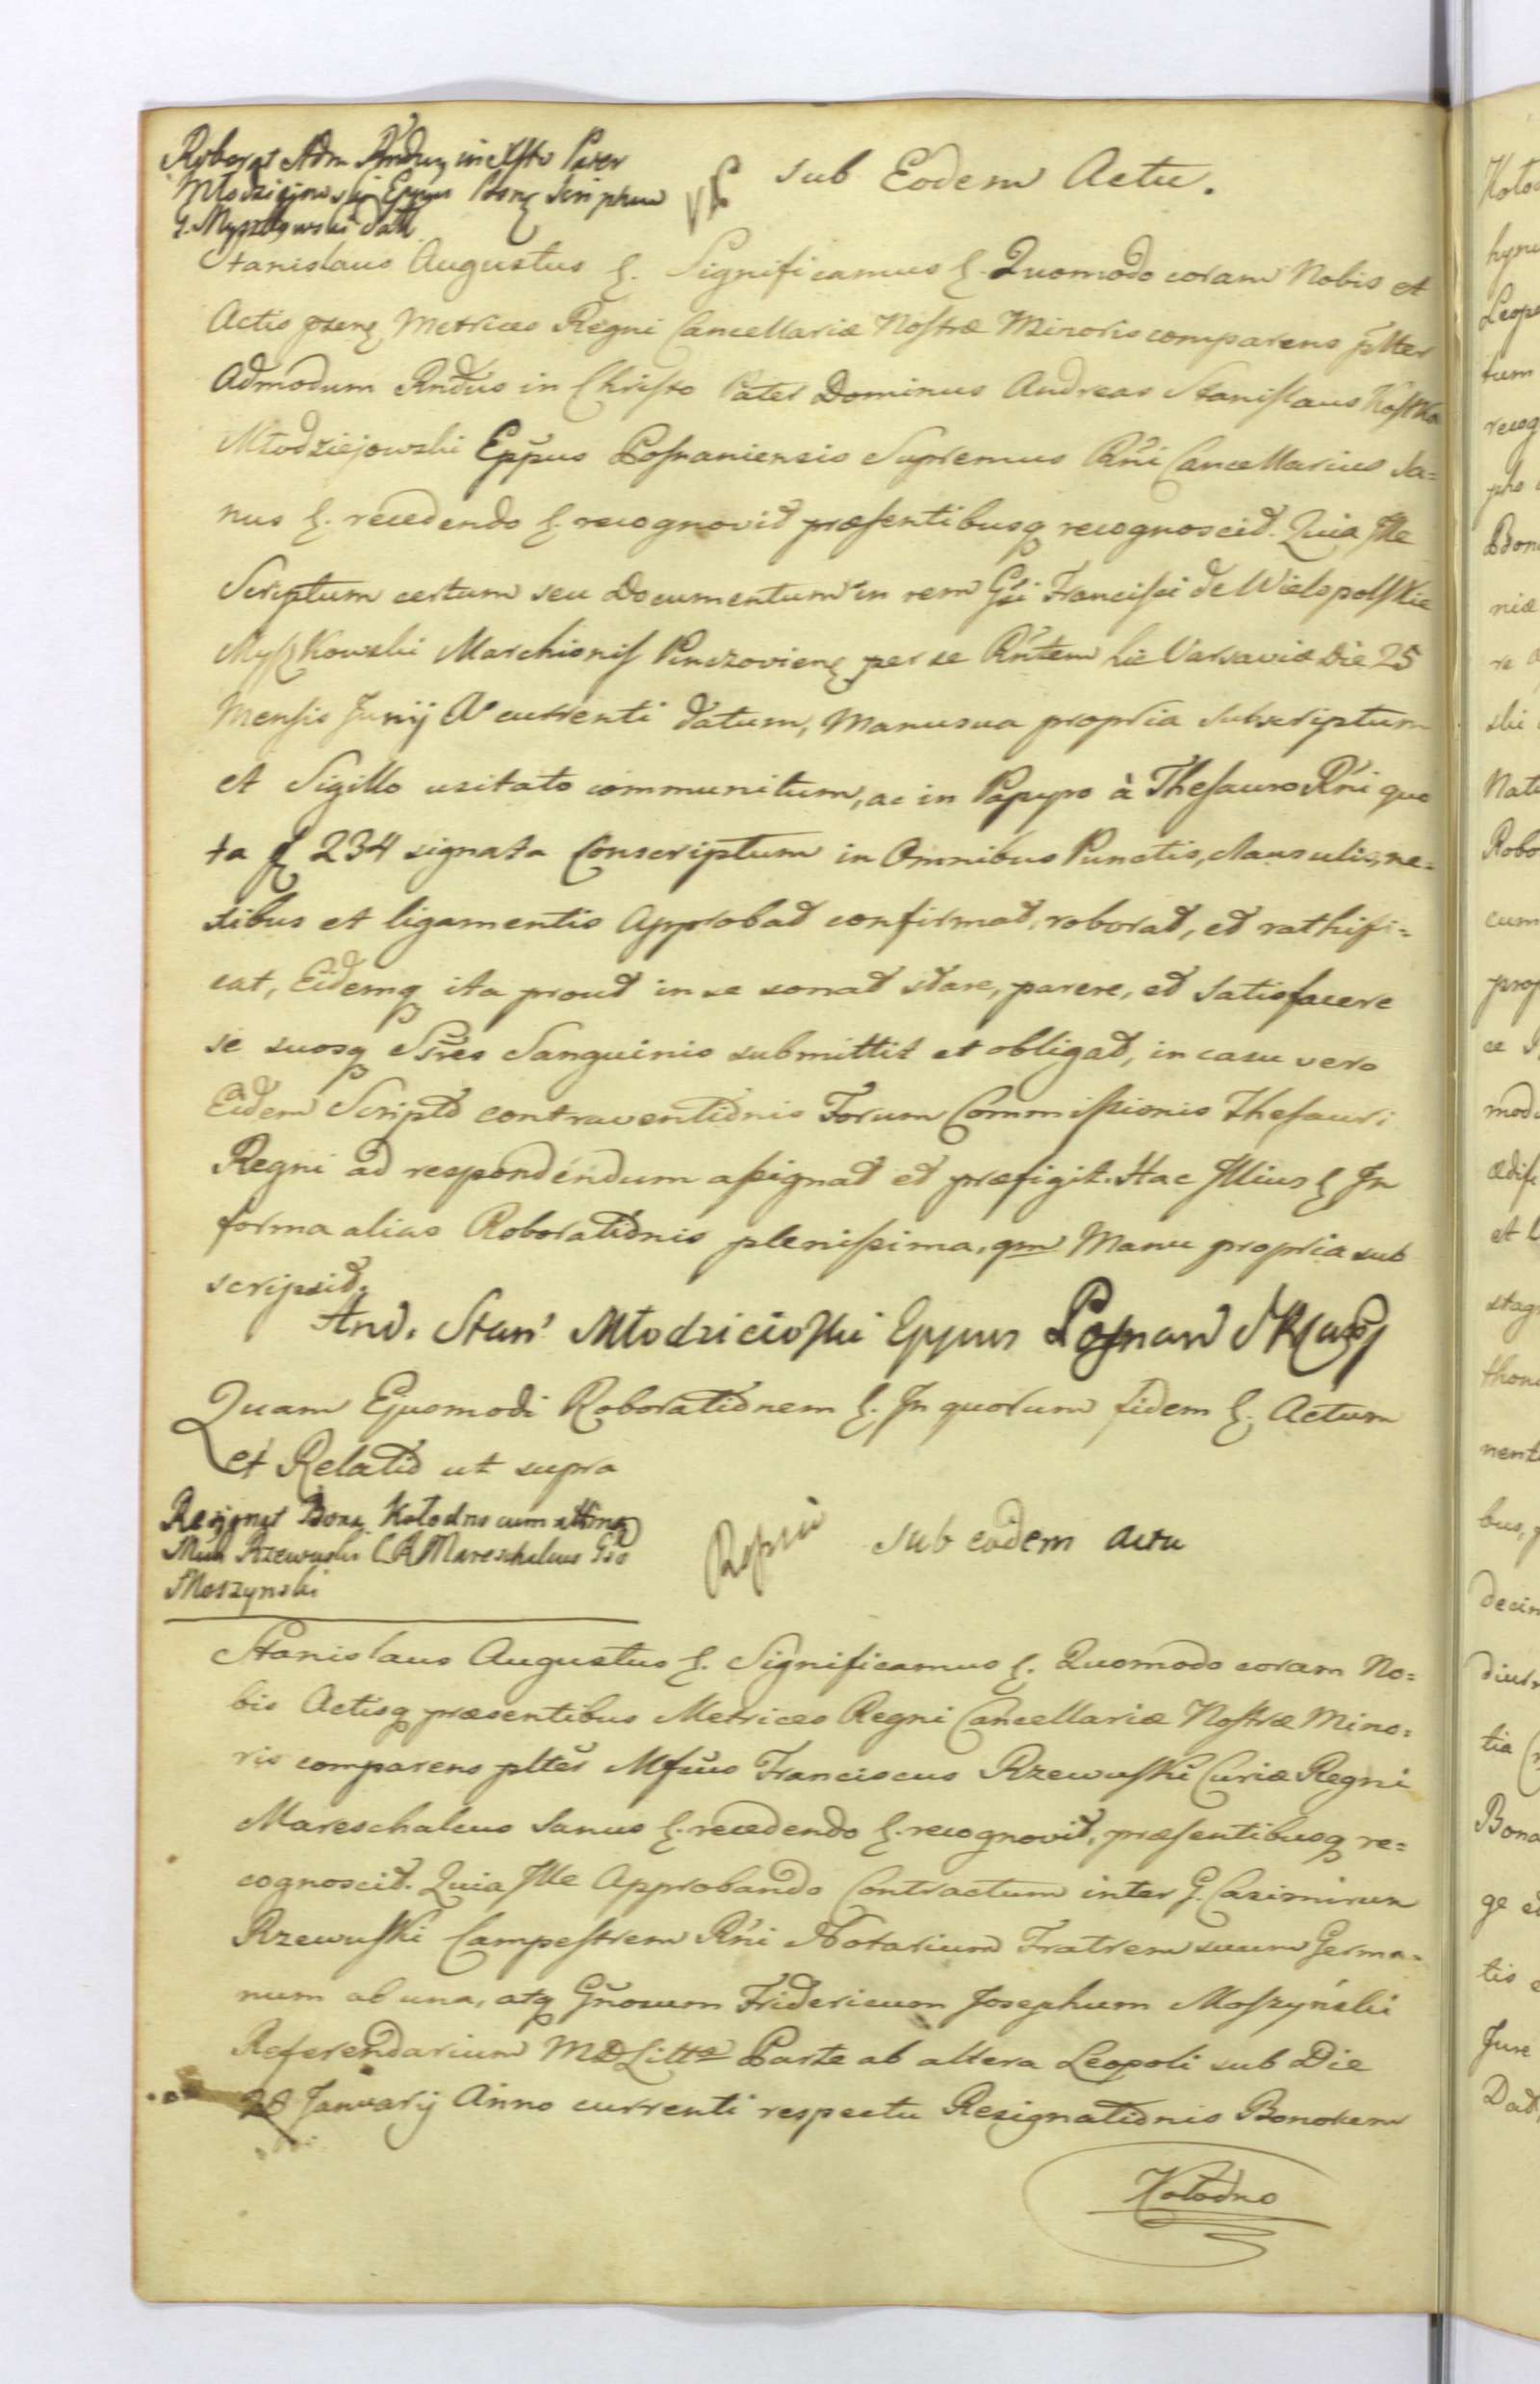 Roborat Adm Rndus in Xsto Pater
Młodziejowski Eppus Posn Scriptum
G. Myszkowski dat
sub Eodem Actu.
Stanislaus Augustus &. Significamus &. Quomodo coram Nobis et
Actis pzen Metrices Regni Cancellariæ Nostræ Minoris comparens pltter
Admodum Rndus in Christo Pater Dominus Andreas Stanislaus Kostka
Młodziejowski Eppus Posnaniensis Supremus Rni Cancellarius Sa=
nus &. recedendo &. recognovit præsentibusq recognoscit. Quia Ille
Scriptum certum seu Documentum in rem Gsi Francisci de Wielopolskie
Myszkowski Marchionis Pinczovien per se Rntem hic Varsaviæ Die 25
Mensis Junij Ao currenti datum, Manu sua propria subscriptum
et Sigillo usitato communitum, ac in Papyro à Thesauro Rni quo
ta 234 signata Conscriptum in Omnibus Punctis, clausulis, ne=
xibus et ligamentis Approbat confirmat, roborat, et rathifi=
cat, Eidemq ita prout in se sonat stare, parere, et satisfacere
se suosq Ssres Sanguinis submittit et obligat, in casu vero
Eidem Scripto contraventionis Forum Commissionis Thesauri
Regni ad respondendum assignat et præfigit. Hac Illius & In
forma alias Roborationis plenissima, qm Manu propria sub
scripsit.
And. Stan Młodzieioski Eppus Posnan
Quam Ejusmodi Roborationem &. In quorum fidem &. Actum
et Relatio ut supra
Resignat Bona Kołodno cum attinen
Rzewuski C R Mareschalcus Gso
Moszynski
sub eodem actu
Stanislaus Augustus &. Significamus &. Quomodo coram No=
bis Actisq præsentibus Metrices Regni Cancellariæ Nostræ Mino=
ris comparens pltter Mfcus Franciscus Rzewuski Curiæ Regni
Mareschalcus Sanus &. recedendo &. recognovit, præsentibusq re=
cognoscit. Quia Ille Approbando Contractum inter G. Casimirum
Rzewuski Campestrem Rni Notarium Fratrem suum Germa=
num ab una, atq Gnosum Fridericum Josephum Moszyński
Referendarium MDLittæ Parte ab altera Leopoli sub Die
28 Januarij Anno currenti respectu Resignationis Bonorum
Kołodno